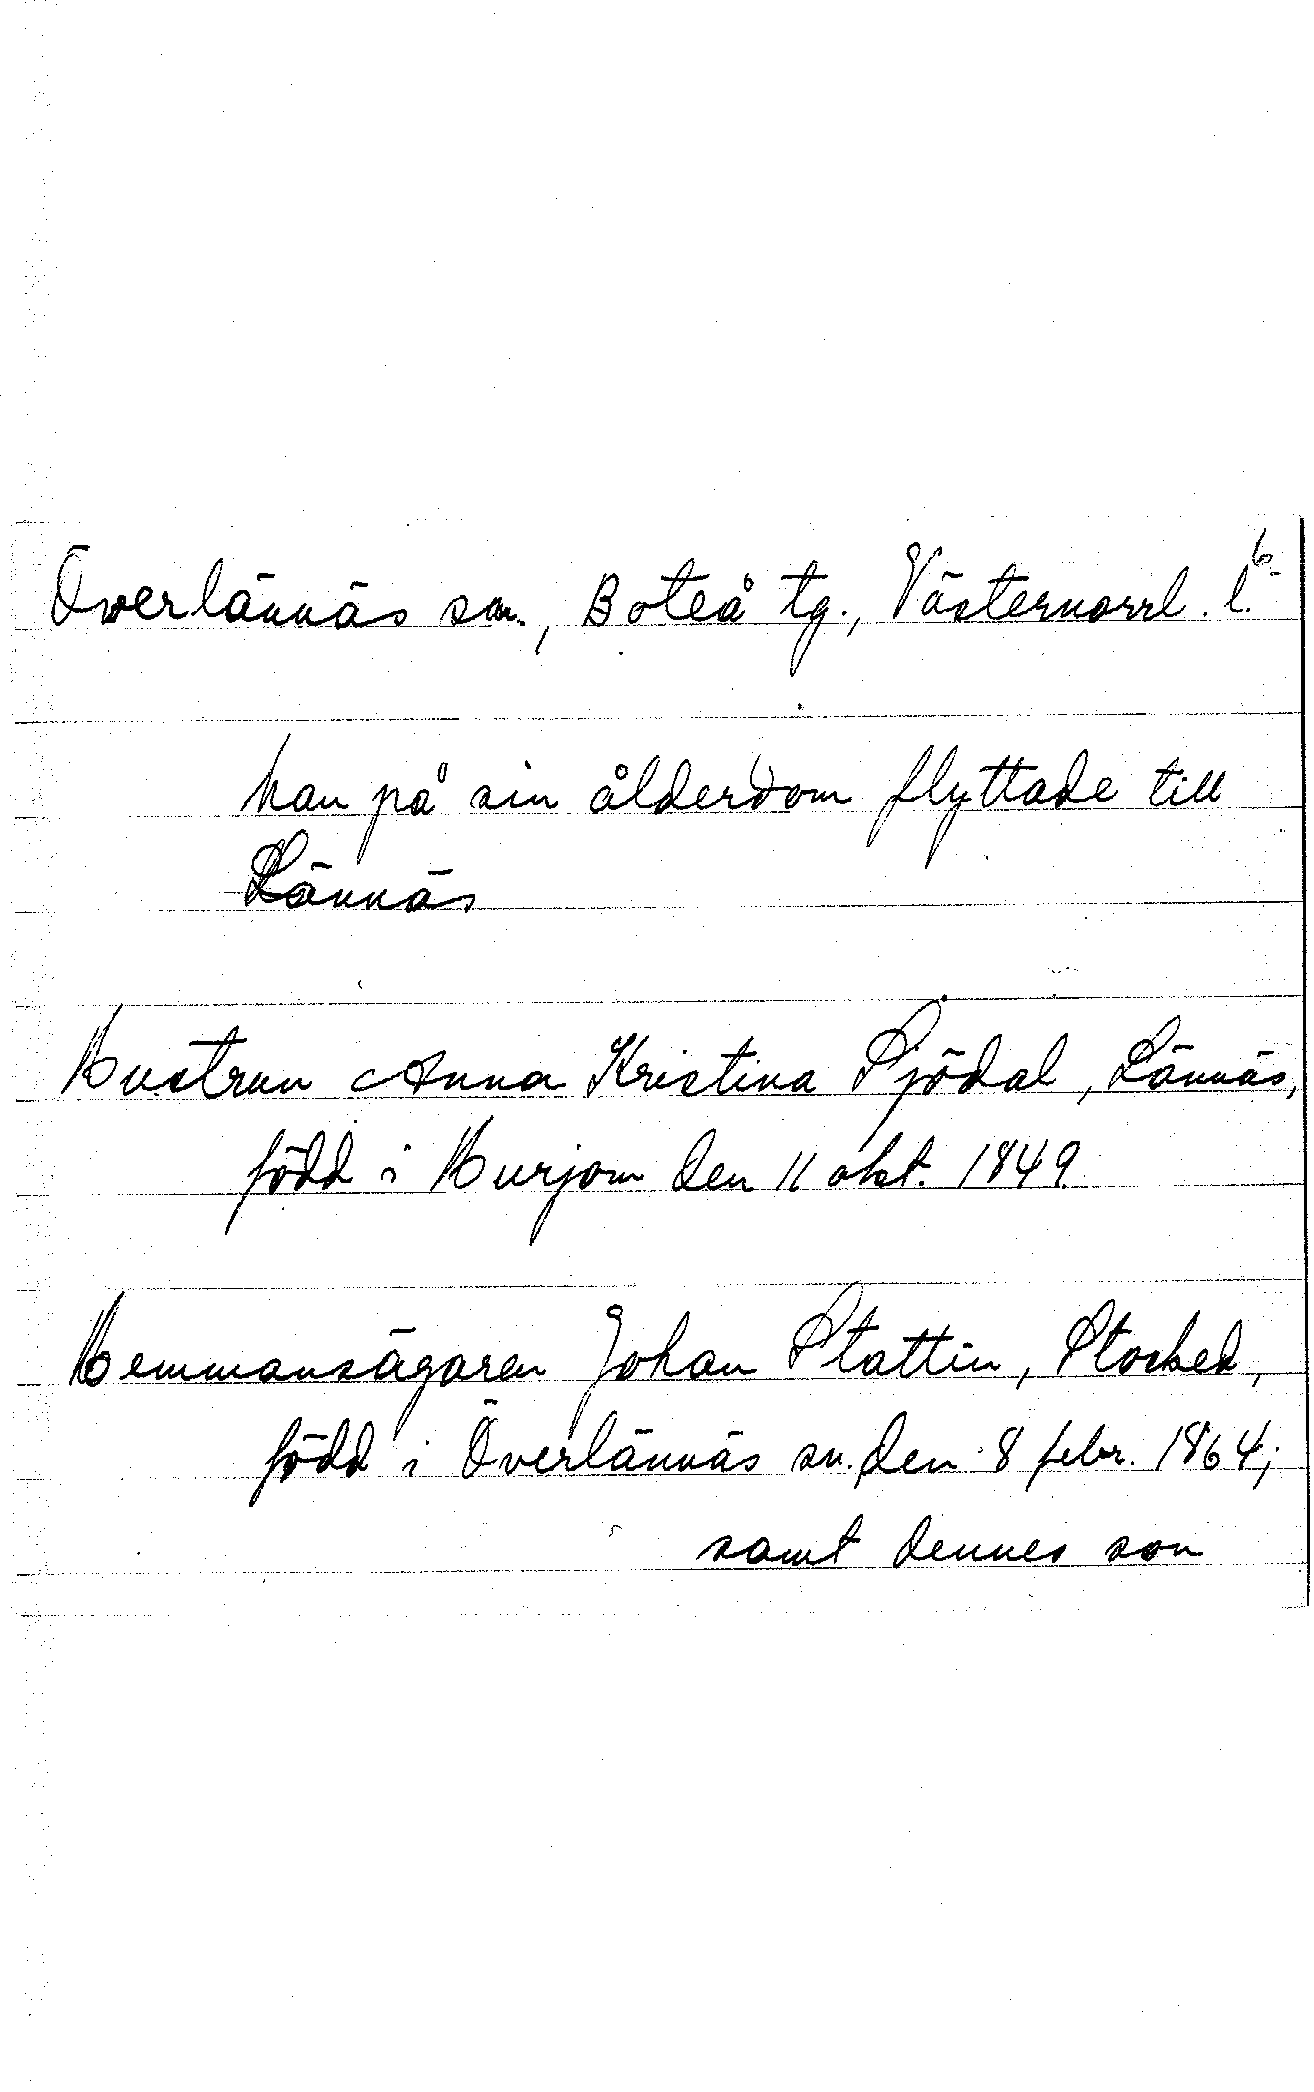 Överlännäs sn., Boteå tg., Västernorrl. l. 6
han på sin ålderdom flyttade till
Lännäs
Hustrun Anna Kristina Sjödal, Lännäs,
född i Hurjom den 11 okt. 1849
Hemmansägaren Johan Stattin, Stocked,
född i Överlännäs sn. den 8 febr. 1864;
samt dennes son